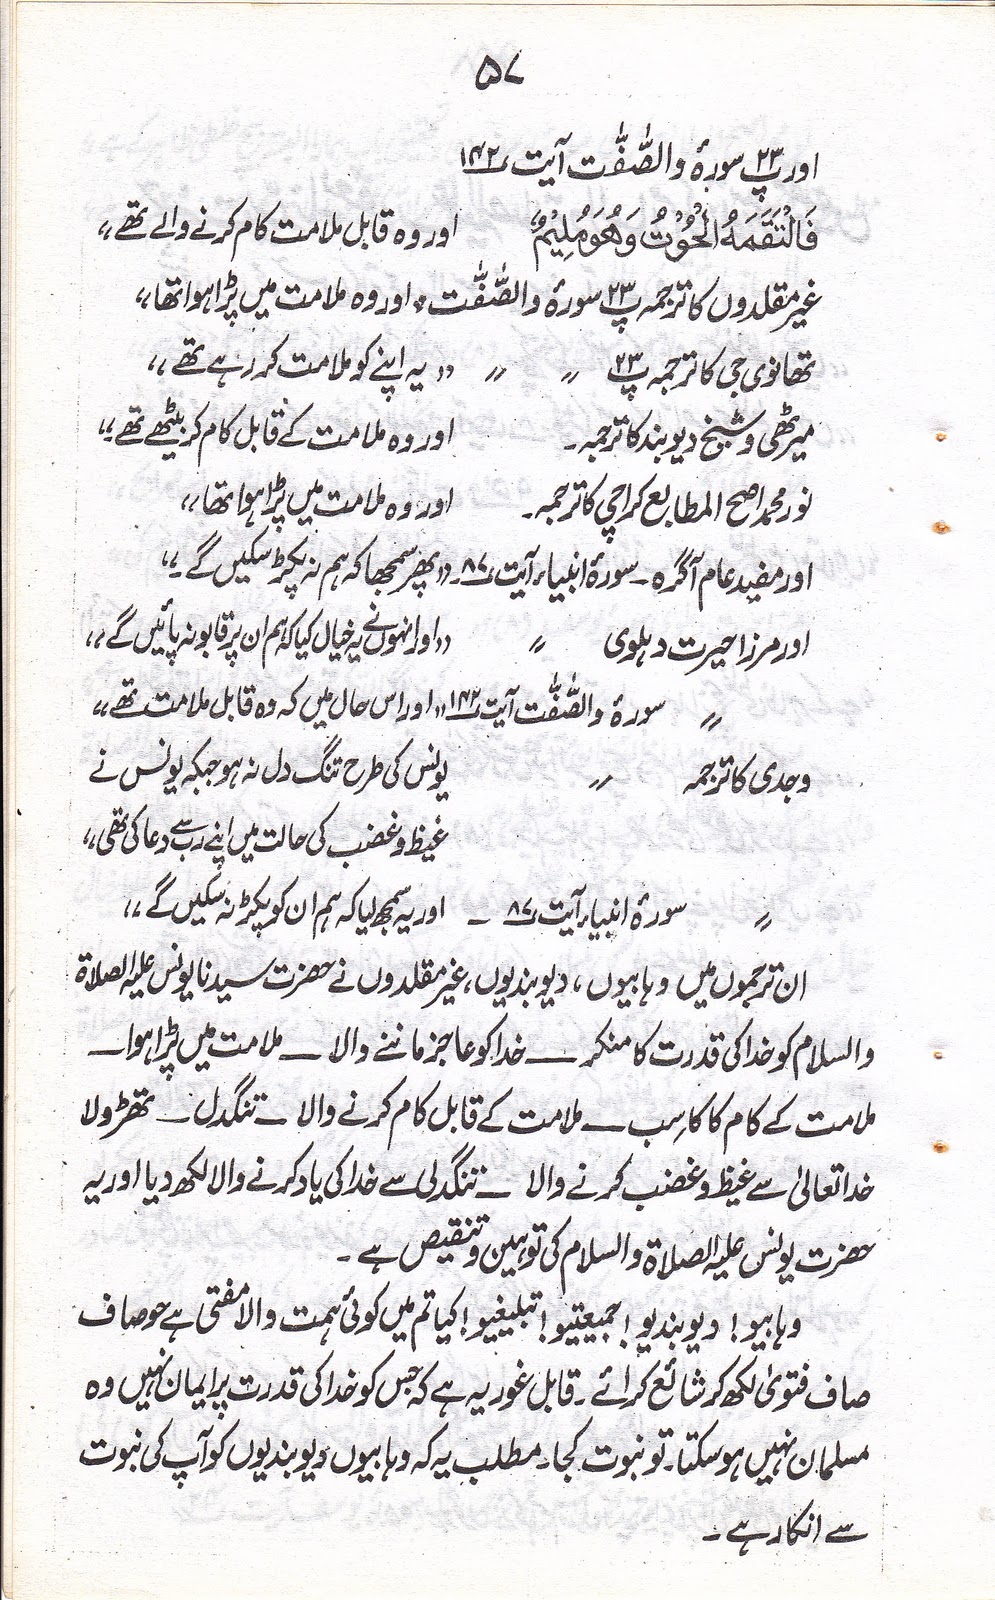 ۵۷
اور پ ۲۳ سورۂ والصّٰفّٰت آیت ۱۴۲
فَالْتَقَمَهُ الْحُوْتُ وَهُوَ مُلِيْمٌ اور وہ قابل ملامت کام کرنے والے تھے،،
غیر مقلدوں کا ترجمہ پ ۲۳ سورۂ والصّٰفّٰت ، اور وہ ملامت میں پڑا ہوا تھا،،
تھانوی جی کا ترجمہ پ ۲۳ ،، ،، ،، یہ اپنے کو ملامت کر رہے تھے،،
میرٹھی و شیخ دیوبند کا ترجمہ۔ اور وہ ملامت کے قابل کام کر بیٹھے تھے۔،،
نور محمد اصح المطابع کراچی کا ترجمہ۔ اور وہ ملامت میں پڑا ہوا تھا،،
اور مفید عام آگرہ۔ سورۂ انبیاء آیت ۸۷۔ ،،پھر سمجھا کہ ہم نہ پکڑ سکیں گے۔،،
اور مرزا حیرت دہلوی ،، ،،اور انہوں نے یہ خیال کیا کہ ہم ان پر قابو نہ پائیں گے،،
،، سورۂ والصّٰفّٰت آیت ۱۴۲ ،،اور اس حال میں کہ وہ قابل ملامت تھے،،
وجدی کا ترجمہ ،، یونس کی طرح تنگ دل نہ ہو جبکہ یونس نے
غیظ و غضب کی حالت میں اپنے رب سے دعا کی تھی،،
،، سورۂ انبیاء آیت ۸۷ ـ اور یہ سمجھ لیا کہ ہم ان کو پکڑ نہ سکیں گے،،
ان ترجموں میں وہابیوں، دیوبندیوں، غیر مقلدوں نے حضرت سیدنا یونس علیہ الصلاۃ
والسلام کو خدا کی قدرت کا منکر ـــ خدا کو عاجز ماننے والا ـــ ملامت میں پڑا ہوا ـــ
ملامت کے کام کا کاسِب ـــ ملامت کے قابل کام کرنے والا ـــ تنگدل ـــ تھڑدلا
خدا تعالیٰ سے غیظ و غضب کرنے والا ـــ تنگدلی سے خدا کی یاد کرنے والا لکھ دیا اور یہ
حضرت یونس علیہ الصلاۃ والسلام کی توہین و تنقیص ہے۔
وہابیو! دیوبندیو! جمیعتیو! تبلیغیو! کیا تم میں کوئی ہمت والا مفتی ہے جو صاف
صاف فتویٰ لکھ کر شائع کرائے۔ قابل غور یہ ہے کہ جس کو خدا کی قدرت پر ایمان نہیں وہ
مسلمان نہیں ہو سکتا۔ تو نبوت کجا۔ مطلب یہ کہ وہابیوں دیوبندیوں کو آپ کی نبوت
سے انکار ہے۔